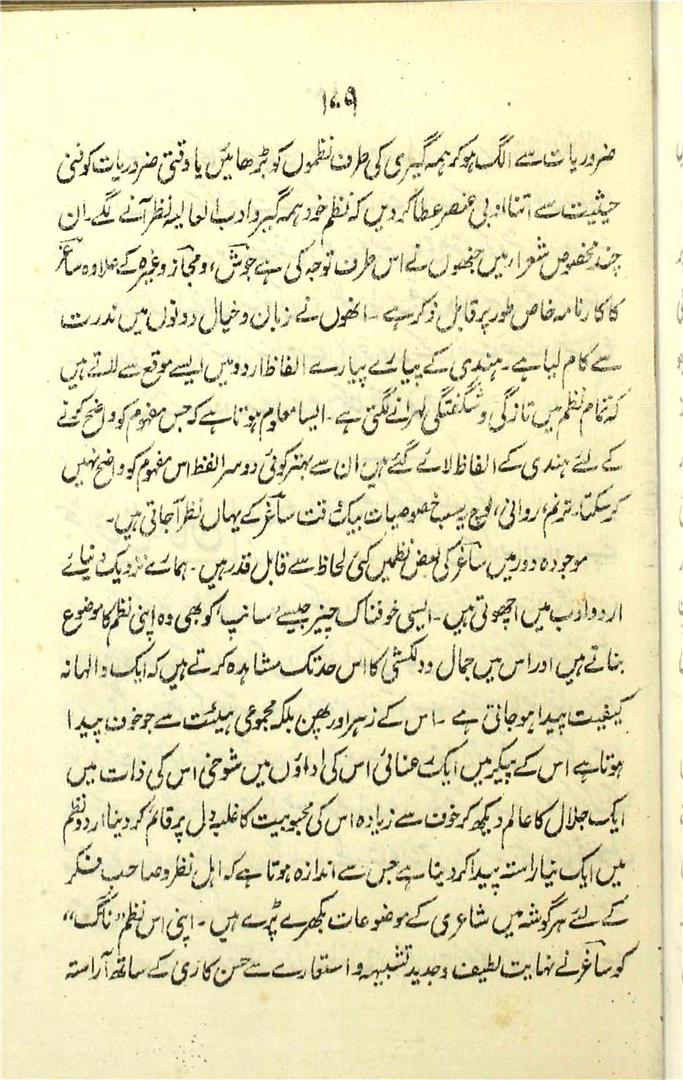 ۱۷۹
ضروریات سے الگ ہو کر ہمہ گیری کی طرف نظموں کو بڑھائیں یا وقتی ضروریات کو فنی
حیثیت سے اتنا ادبی عنصر عطا کر دیں کہ نظم خود ہمہ گیر و ادب العالیہ نظر آنے لگے۔ ان
چند مخصوص شعراء میں جنھوں نے اس طرف توجہ کی ہے جوش، و مجاز وغیرہ کے علاوہ ساغر
کا کارنامہ خاص طور پر قابل ذکر ہے۔ انھوں نے زبان و خیال دونوں میں ندرت
سے کام لیا ہے۔ ہندی کے پیارے پیارے الفاظ اردو میں ایسے موقع سے لاتے ہیں
کہ تمام نظم میں تازگی و شگفتگی لہرانے لگتی ہے۔ ایسا معلوم ہوتا ہے کہ جس مفہوم کو واضح کرنے
کے لئے ہندی کے الفاظ لائے گئے ہیں ان سے بہتر کوئی دوسرا لفظ اس مفہوم کو واضح نہیں
کر سکتا۔ ترنم، روانی، لوچ یہ سب خصوصیات بیک وقت ساغر کے یہاں نظر آجاتی ہیں۔
موجودہ دور میں ساغر کی بعض نظمیں کئی لحاظ سے قابل قدر ہیں۔ ہمارے نزدیک دنیائے
اردو ادب میں اچھوتی ہیں۔ ایسی خوفناک چیز جیسے "سانپ" کو بھی وہ اپنی نظم کا موضوع
بناتے ہیں اور اس میں جمال و دلکشی کا اس حد تک مشاہدہ کرتے ہیں کہ ایک والہانہ
کیفیت پیدا ہو جاتی ہے۔ اس کے زہر اور پھن بلکہ مجموعی ہیئت سے جو خوف پیدا
ہوتا ہے اس کے پیکر میں ایک رعنائی اس کی اداؤں میں شوخی اس کی ذات میں
ایک جلال کا عالم دیکھ کر خوف سے زیادہ اس کی محبوبیت کا غلبہ دل پر قائم کر دینا اردو نظم
میں ایک نیا راستہ پیدا کر دینا ہے جس سے اندازہ ہوتا ہے کہ اہل نظر و صاحب فکر
کے لئے ہر گوشہ میں شاعری کے موضوعات بکھرے پڑے ہیں۔ اپنی اس نظم "ناگ"
کو ساغر نے نہایت لطیف و جدید تشبیہ و استعارے سے حسن کاری کے ساتھ آراستہ